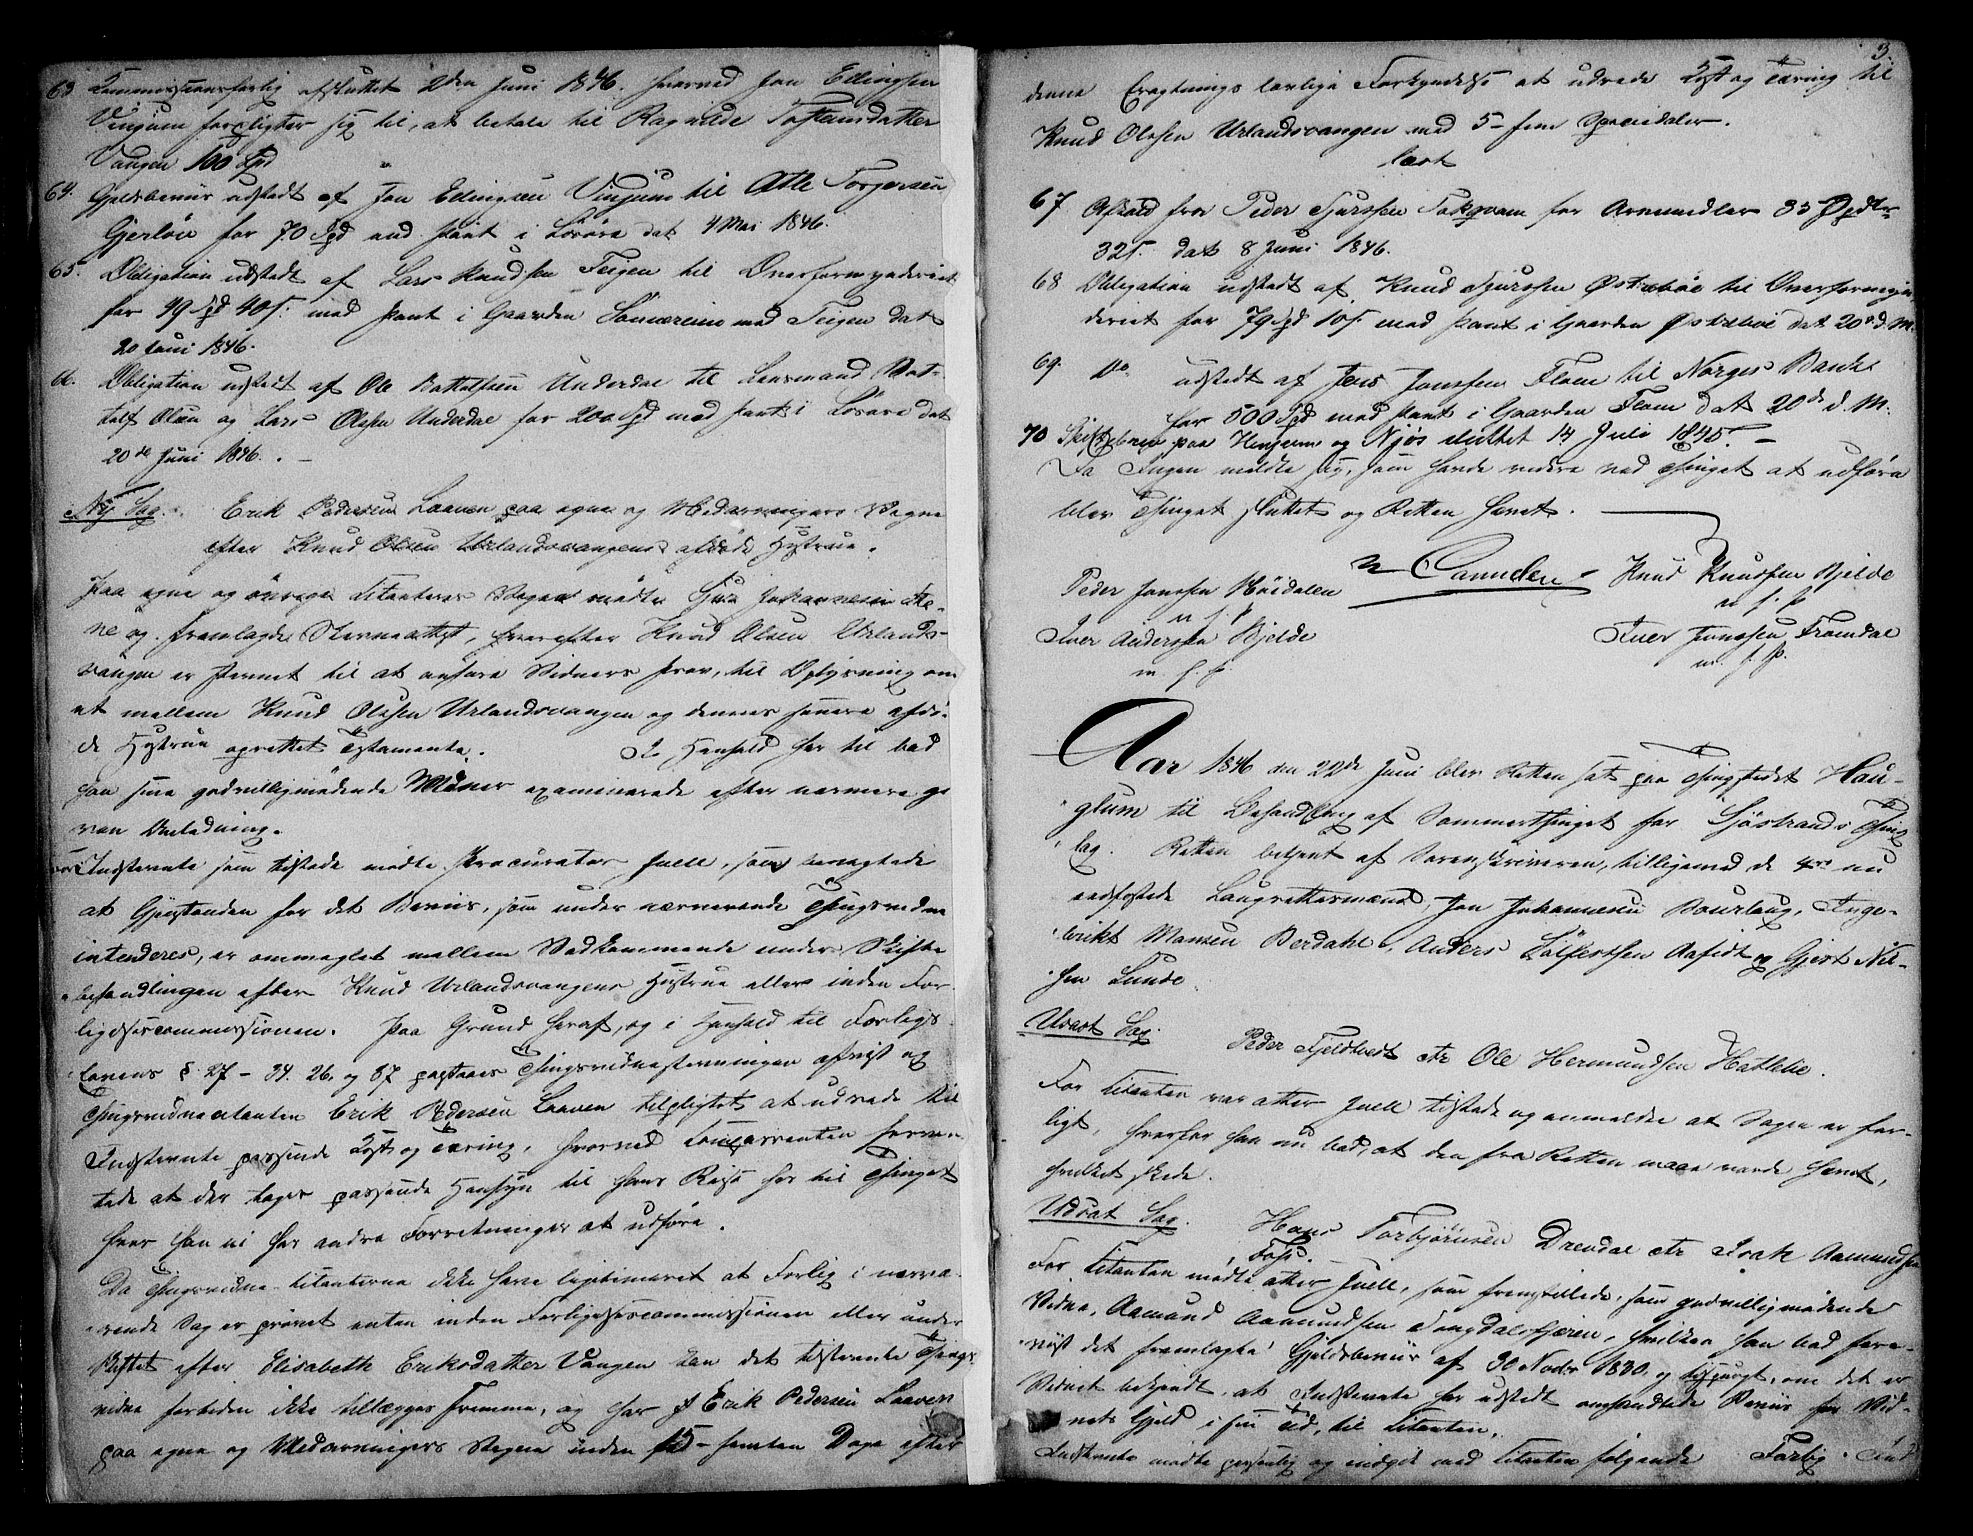 63 Commissionsforlig afsluttet 2den Juni 1846. hvorved Jon Ellingsen
Vinjum forpligter sig til, at betale til Ragnilde Tostensdatter
Vangen 100 Spd
64. Gjeldsbeviis udstedt af Jon Ellingsen Vinjum til Atle Torgersen
Gjerløw for 70 Spd med Pant i Løsøre dat 4 Mai 1846.
65. Obligation udstedt af Lars Knudsen Teigen til Overformynderiet
for 49 Spd 40 s. med Pant i Gaarden med Teigen dat
20 Juni 1846.
66. Obligation udstedt af Ole Bottolfsen Underdal til Lensmand Bot-
tolf Olsen og Lars Olsen Underdal for 200 Spd med Pant i Løsøre dat
20de Juni 1846. –
Ny Sag. Erik Pedersen Laaven paa egne og Medarvingers Vegne
efter Knud Olsen Urlandsvangens afdøde Hustrue.
Paa egne og øvrige Citanters Vegne mødte Johannesen Ste-
ne og fremlagde Skevneattest, hvorefter Knud Olsen Urlands-
vangen er stevnet til at anhøre Vidners Prov, til Oplysning om
et mellem Knud Olsen Urlandsvangen og dennes senere afdø-
de Hustrue oprettet Testamente. I Henhold her til bad
han sine godvilligmødende Vidner examinerede efter nærmere gi
ven Anledning.
Indstevnte som tilstede mødte Procurator Juell, som benegtede
at Gjenstanden for det Beviis, som under nærværende Thingsvidne
intenderes, er ommæglet mellem Vedkommende under Skifte
behandlingen efter Knud Urlandsvangens Hustrue eller inden For-
ligelsescommissionen. Paa Grund heraf, og i Henhold til Forligs
Lovens §. 27 – 34. 26. og 87 paastaaes Thingsvidnestevningen afvist og
Thingsvidnecitanten Erik Pedersen Laaven tilpligtet at udrede til
Indstevnte passende Kost og Tæring, hvorved Comparenten forven-
tede at der tages passende Hensyn til hans Reise her til Thinget
hvor han ei har andre Forretninger at udføre.
Da Thingsvidne-Citanterne ikke have legitimeret at Forlig i nærvæ-
rende Sag er prøvet enten inden Forligelsescommissionen eller under
Skiftet efter Elisabeth Eriksdatter Vangen kan det tilstevnte Things
vidne forinden ikke tillægges Fremme, og har Erik Pedersen Laaven
paa egne og Medarvingers Vegne inden 15 – femten Dage efter
3.
denne Eragtnings lovlige Forkyndelse at udrede Kost og Tæring til
Knud Olsen Urlandsvangen med 5 – fem Speciedaler.
læst
67 Afkald fra Peder Sjursen Tokvam for Arvemidler 83 Spdlr
32 s. dat 8 Juni 1846.
68 Obligation udstedt af Knud Sjursen Østrebøe til Overformyn
deriet for 79 Spd 10 s. med Pant i Gaarden Østrebøe dat 20de d. M.
69. Do. udstedt af Jens Jonsen Flom til Norges Bank
for 500 Spd med Pant i Gaarden Flom dat 20de d. M.
70 Skiftebrev paa Henjum og Njøs sluttet 14 Juli 1845. –
Da Ingen meldte sig, som havde videre ved Thinget at udføre
blev Thinget sluttet og Retten hævet.
Peder Jonsen Høidalen
m f p
Iver Andersen Bjelde
m. f. p
Knud Knudsen Bjelde
m. f. p
Iver Jonssen Fromdal
m. f. p.
Aar 1846 den 22de Juni blev Retten sat paa Thingstedet Hau-
glum til Behandling af Sommerthinget for Sjøstrands Thing
lag. Retten betjent af Sorenskriveren, tilligemed de 4re nu
eedfæstede Laugrettesmænd Jon Johannesen Bourlaug, Inge-
brikt Monsen Berdahl, Anders Aafedt og Gjert Nil-
sen Lunde.
Udsat Sag. Peder Fjeldtvedt ctr Ole Hermundsen Hatlelie.
For Citanten var atter Juell tilstede og anmeldte at Sagen er for-
ligt, hvorfor han nu bad, at den fra Retten maae vorde hævet,
hvilket skede.
Udsat Sag. Hans Torbjørnsen Drevdal ctr Isak Aamundsen
Foss.
For Citanten mødte atter Juell, som fremstillede, som godvilligmødende
Vidne, Aamund Aamundsen Songdalsfjæren, hvilken han bad fore-
viist det fremlagte Gjeldsbeviis af 30 Novbr 1830. og tilspurgt, om det er
Vidnet bekjendt, at Indstevnte har udstedt omhandlede Beviis for Vid-
nets Gjeld i sin Tid, til Citanten.
Indstevnte mødte personlig og indgik med Citanten følgende Forlig.